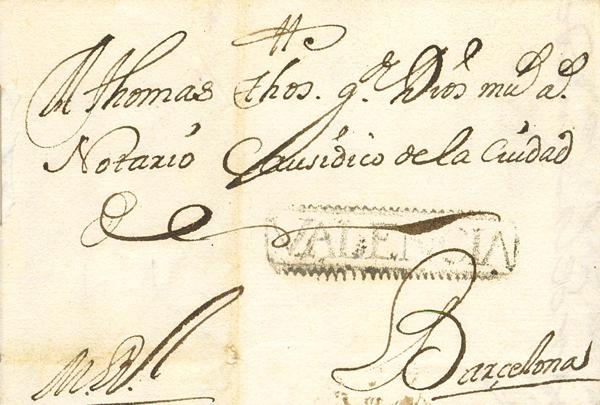 A Thomas Thos. g.e Dios m.s a.s
Notario Causidico de la Ciudad
VALENCIA
Barçelona